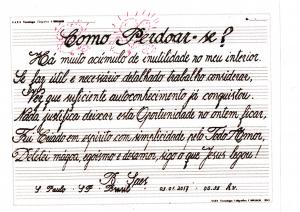 Como Perdoar-se?
Há muito acúmulo de inutilidade no meu interior.
Se faz útil e necessário detalhado trabalho considerar,
Por que suficiente autoconhecimento já conquistou.
Nada justifica deixar esta Oportunidade no ontem ficar,
Fui Criado em espírito com simplicidade pelo Todo Amor,
Deletei mágoa, egoísmo e desamor, sigo o que Jesus legou!
S. Paulo - SP - Brasil